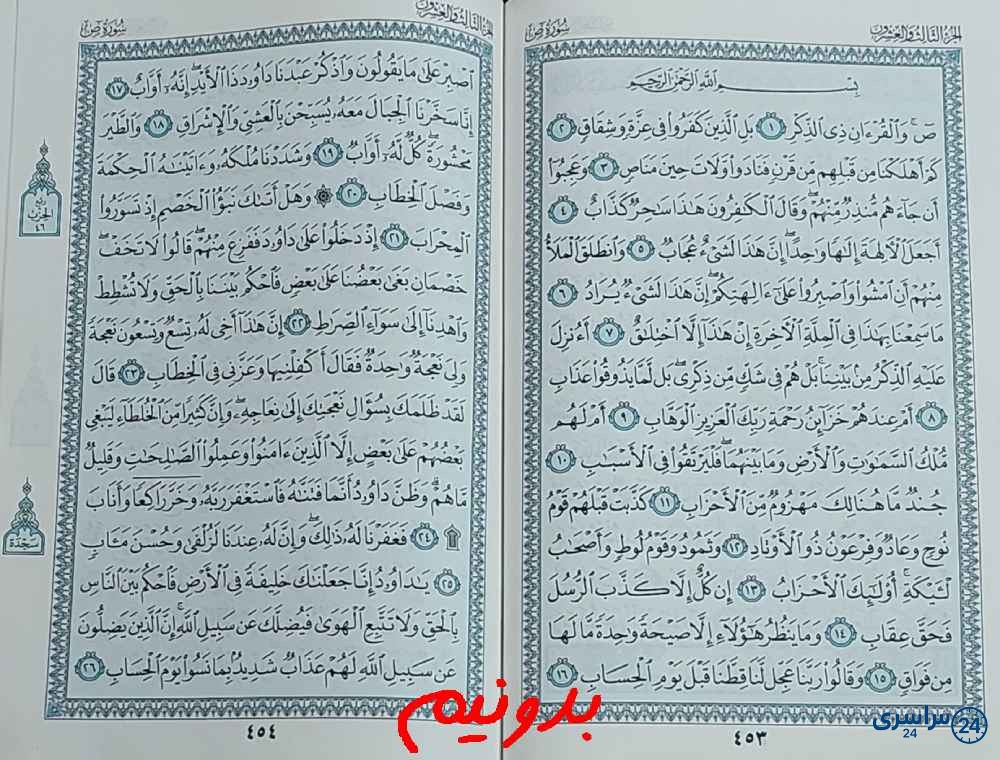 الجزء الثالث والعشرون
سورة ص
بِسْمِ اللَّهِ الرَّحْمَٰنِ الرَّحِيمِ
صٓۚ وَٱلۡقُرۡءَانِ ذِي ٱلذِّكۡرِ ١ بَلِ ٱلَّذِينَ كَفَرُواْ فِي عِزَّةٖ وَشِقَاقٖ ٢
كَمۡ أَهۡلَكۡنَا مِن قَبۡلِهِم مِّن قَرۡنٖ فَنَادَواْ وَّلَاتَ حِينَ مَنَاصٖ ٣ وَعَجِبُوٓاْ
أَن جَآءَهُم مُّنذِرٞ مِّنۡهُمۡۖ وَقَالَ ٱلۡكَٰفِرُونَ هَٰذَا سَٰحِرٞ كَذَّابٌ ٤
أَجَعَلَ ٱلۡأٓلِهَةَ إِلَٰهٗا وَٰحِدًاۖ إِنَّ هَٰذَا لَشَيۡءٌ عُجَابٞ ٥ وَٱنطَلَقَ ٱلۡمَلَأُ
مِنۡهُمۡ أَنِ ٱمۡشُواْ وَٱصۡبِرُواْ عَلَىٰٓ ءَالِهَتِكُمۡۖ إِنَّ هَٰذَا لَشَيۡءٞ يُرَادُ ٦
مَا سَمِعۡنَا بِهَٰذَا فِي ٱلۡمِلَّةِ ٱلۡأٓخِرَةِ إِنۡ هَٰذَآ إِلَّا ٱخۡتِلَٰقٌ ٧ أَءُنزِلَ
عَلَيۡهِ ٱلذِّكۡرُ مِنۢ بَيۡنِنَاۚ بَلۡ هُمۡ فِي شَكّٖ مِّن ذِكۡرِيۚ بَل لَّمَّا يَذُوقُواْ عَذَابِ
٨ أَمۡ عِندَهُمۡ خَزَآئِنُ رَحۡمَةِ رَبِّكَ ٱلۡعَزِيزِ ٱلۡوَهَّابِ ٩ أَمۡ لَهُم
مُّلۡكُ ٱلسَّمَٰوَٰتِ وَٱلۡأَرۡضِ وَمَا بَيۡنَهُمَاۖ فَلۡيَرۡتَقُواْ فِي ٱلۡأَسۡبَٰبِ ١٠
جُندٞ مَّا هُنَالِكَ مَهۡزُومٞ مِّنَ ٱلۡأَحۡزَابِ ١١ كَذَّبَتۡ قَبۡلَهُمۡ قَوۡمُ
نُوحٖ وَعَادٞ وَفِرۡعَوۡنُ ذُو ٱلۡأَوۡتَادِ ١٢ وَثَمُودُ وَقَوۡمُ لُوطٖ وَأَصۡحَٰبُ
لۡـَٔيۡكَةِۚ أُوْلَٰٓئِكَ ٱلۡأَحۡزَابُ ١٣ إِن كُلٌّ إِلَّا كَذَّبَ ٱلرُّسُلَ
فَحَقَّ عِقَابِ ١٤ وَمَا يَنظُرُ هَٰٓؤُلَآءِ إِلَّا صَيۡحَةٗ وَٰحِدَةٗ مَّا لَهَا
مِن فَوَاقٖ ١٥ وَقَالُواْ رَبَّنَا عَجِّل لَّنَا قِطَّنَا قَبۡلَ يَوۡمِ ٱلۡحِسَابِ ١٦
٤٥٣
الجزء الثالث والعشرون
سورة ص
ٱصۡبِرۡ عَلَىٰ مَا يَقُولُونَ وَٱذۡكُرۡ عَبۡدَنَا دَاوُۥدَ ذَا ٱلۡأَيۡدِۖ إِنَّهُۥٓ أَوَّابٌ ١٧
إِنَّا سَخَّرۡنَا ٱلۡجِبَالَ مَعَهُۥ يُسَبِّحۡنَ بِٱلۡعَشِيِّ وَٱلۡإِشۡرَاقِ ١٨ وَٱلطَّيۡرَ
مَحۡشُورَةٗۖ كُلّٞ لَّهُۥٓ أَوَّابٞ ١٩ وَشَدَدۡنَا مُلۡكَهُۥ وَءَاتَيۡنَٰهُ ٱلۡحِكۡمَةَ
وَفَصۡلَ ٱلۡخِطَابِ ٢٠ ۞ وَهَلۡ أَتَىٰكَ نَبَؤُاْ ٱلۡخَصۡمِ إِذۡ تَسَوَّرُواْ
ٱلۡمِحۡرَابَ ٢١ إِذۡ دَخَلُواْ عَلَىٰ دَاوُۥدَ فَفَزِعَ مِنۡهُمۡۖ قَالُواْ لَا تَخَفۡۖ
خَصۡمَانِ بَغَىٰ بَعۡضُنَا عَلَىٰ بَعۡضٖ فَٱحۡكُم بَيۡنَنَا بِٱلۡحَقِّ وَلَا تُشۡطِطۡ
وَٱهۡدِنَآ إِلَىٰ سَوَآءِ ٱلصِّرَٰطِ ٢٢ إِنَّ هَٰذَآ أَخِي لَهُۥ تِسۡعٞ وَتِسۡعُونَ نَعۡجَةٗ
وَلِيَ نَعۡجَةٞ وَٰحِدَةٞ فَقَالَ أَكۡفِلۡنِيهَا وَعَزَّنِي فِي ٱلۡخِطَابِ ٢٣ قَالَ
لَقَدۡ ظَلَمَكَ بِسُؤَالِ نَعۡجَتِكَ إِلَىٰ نِعَاجِهِۦۖ وَإِنَّ كَثِيرٗا مِّنَ ٱلۡخُلَطَآءِ لَيَبۡغِي
بَعۡضُهُمۡ عَلَىٰ بَعۡضٍ إِلَّا ٱلَّذِينَ ءَامَنُواْ وَعَمِلُواْ ٱلصَّٰلِحَٰتِ وَقَلِيلٞ
مَّا هُمۡۗ وَظَنَّ دَاوُۥدُ أَنَّمَا فَتَنَّٰهُ فَٱسۡتَغۡفَرَ رَبَّهُۥ وَخَرَّۤ رَاكِعٗاۤ وَأَنَابَ
۩ ٢٤ فَغَفَرۡنَا لَهُۥ ذَٰلِكَۖ وَإِنَّ لَهُۥ عِندَنَا لَزُلۡفَىٰ وَحُسۡنَ مَـَٔابٖ
٢٥ يَٰدَاوُۥدُ إِنَّا جَعَلۡنَٰكَ خَلِيفَةٗ فِي ٱلۡأَرۡضِ فَٱحۡكُم بَيۡنَ ٱلنَّاسِ
بِٱلۡحَقِّ وَلَا تَتَّبِعِ ٱلۡهَوَىٰ فَيُضِلَّكَ عَن سَبِيلِ ٱللَّهِۚ إِنَّ ٱلَّذِينَ يَضِلُّونَ
عَن سَبِيلِ ٱللَّهِ لَهُمۡ عَذَابٞ شَدِيدُۢ بِمَا نَسُواْ يَوۡمَ ٱلۡحِسَابِ ٢٦
٤٥٤
ربع
الحزب
٤٦
سجدة
بدونیم
سراسری
24
24